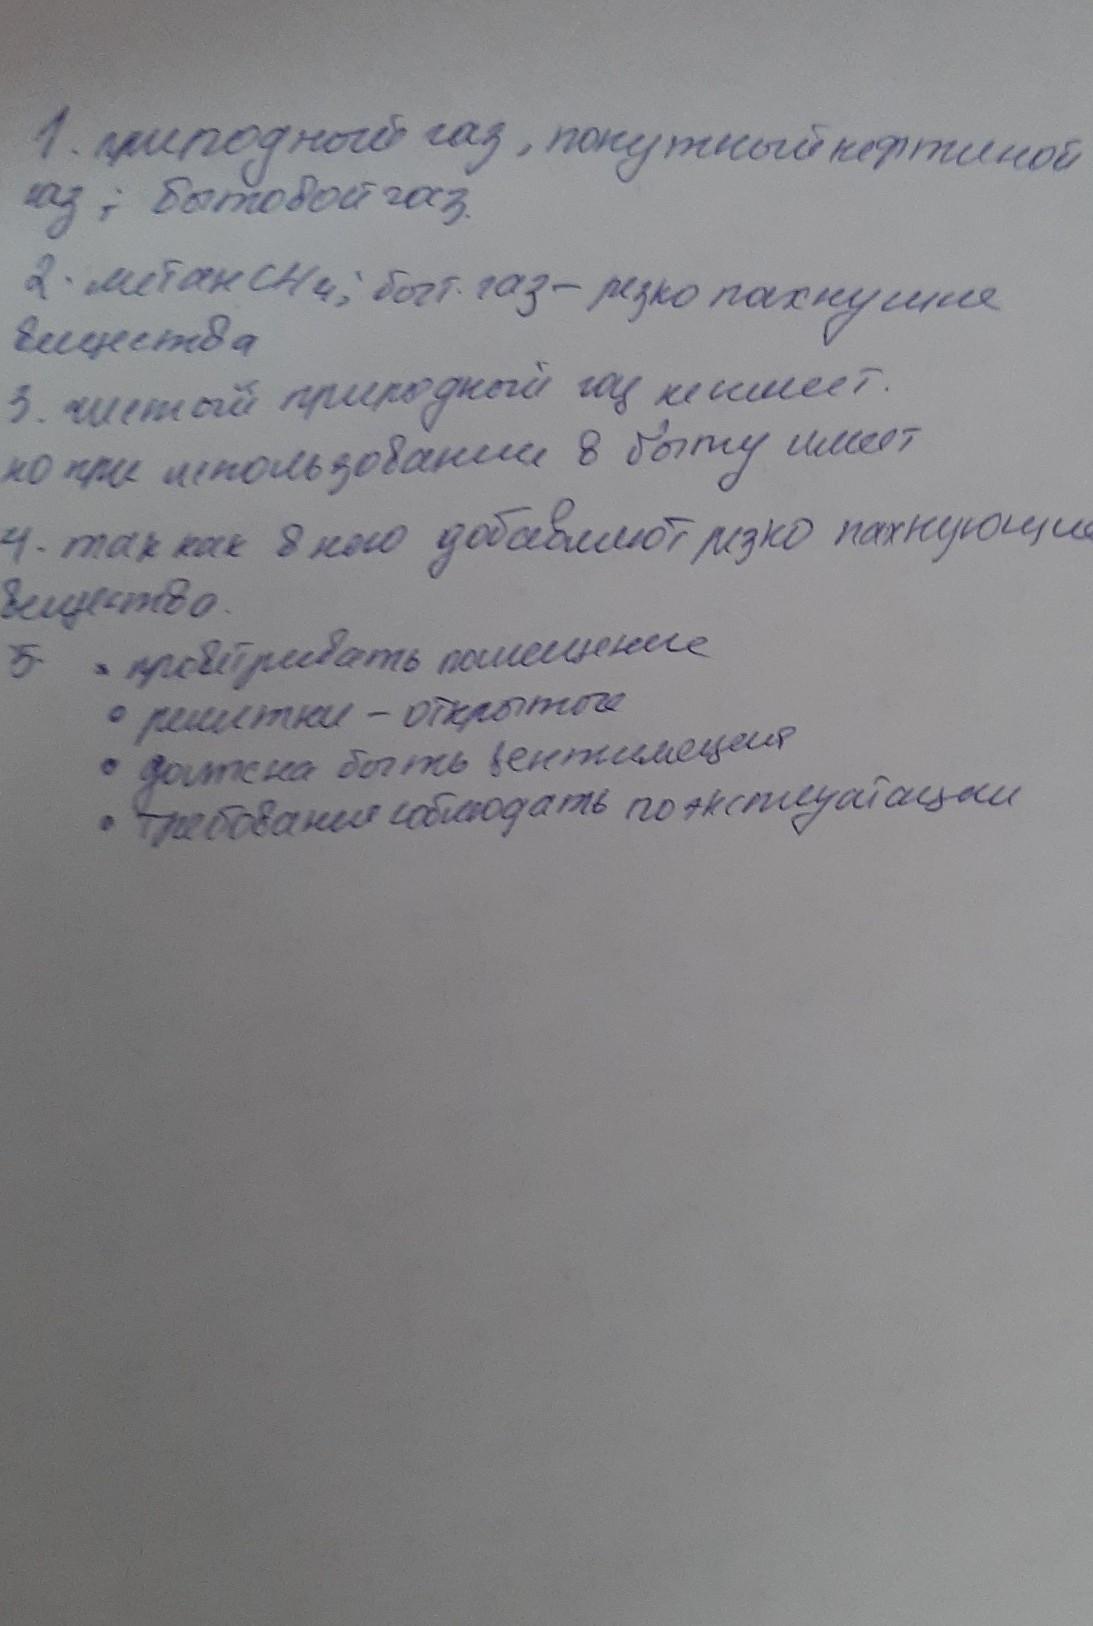 1. природный газ, попутный нефтяной
газ; бытовой газ.
2. метан CH4; быт. газ – резко пахнущие
вещества
3. чистый природный газ не имеет.
но при использовании в быту имеет
4. так как в него добавляют резко пахнующие
вещества.
5 • проветривать помещение
• решетки – открытые
• должна быть вентиляция
• требования соблюдать по эксплуатации